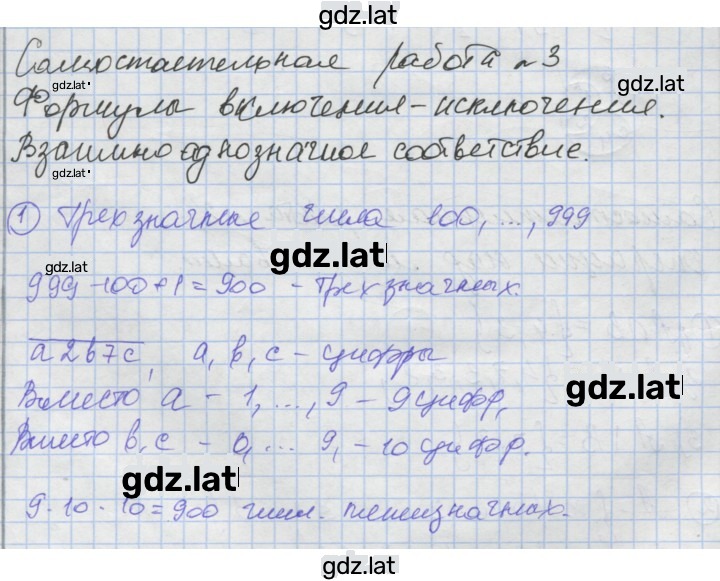 gdz.lat
Самостоятельная работа №3
gdz.lat
gdz.lat
Формулы включения-исключения.
Взаимно однозначное соответствие.
gdz.lat
① Трехзначные числа 100, ..., 999
gdz.lat
gdz.lat
999-100+1=900 - трехзначных.
a2b7c, a, b, c - цифры
gdz.lat
Вместо a - 1, ..., 9 - 9 цифр,
Вместо b, c - 0, ... 9, - 10 цифр.
gdz.lat
9·10·10=900 чисел. пятизначных.
gdz.lat